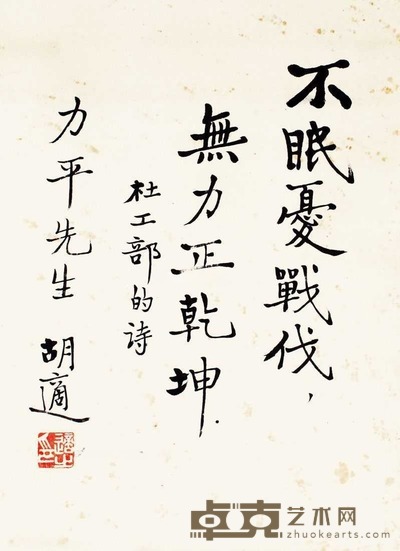 不眠憂戰伐，
無力正乾坤．
杜工部的诗
力平先生
胡適
卓克艺术网
zhuokearts.com